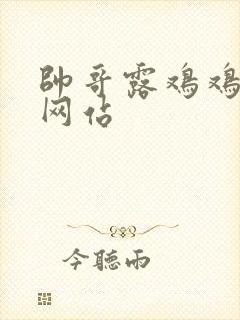 帥哥露鸡鸡
网站
今聽雨